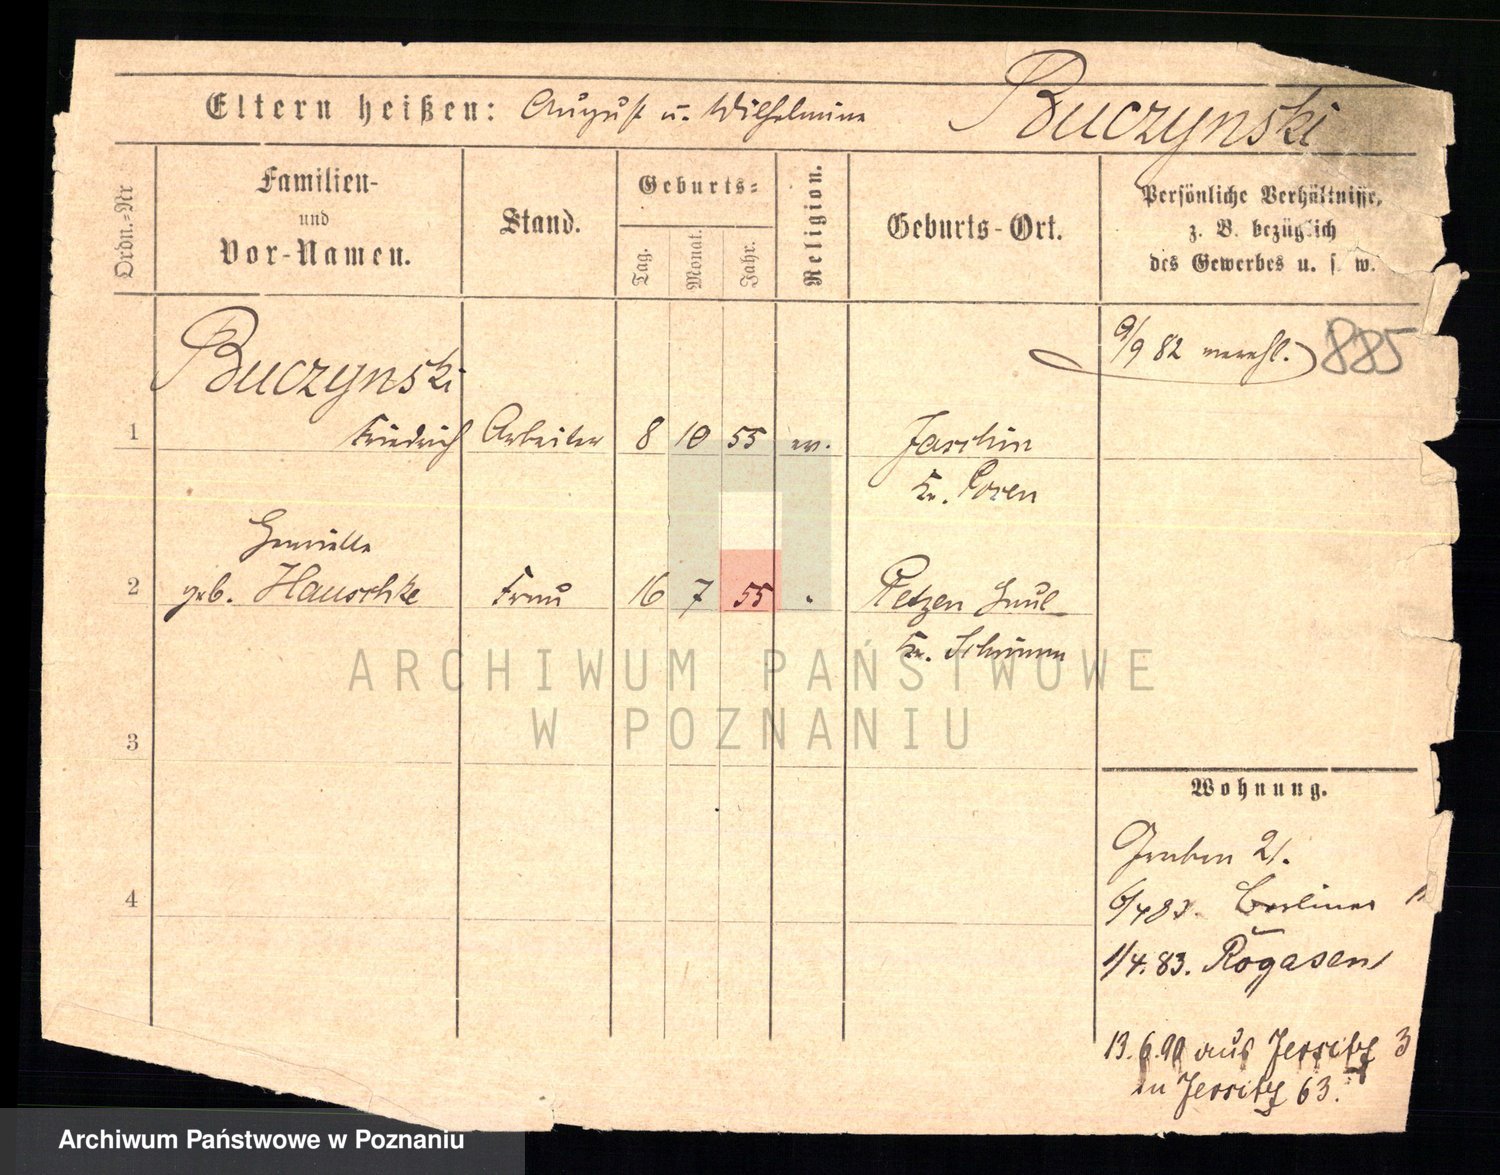 Eltern heißen: August u. Wilhelmine Buczynski
Ordn.-Nr
Familien-
und
Vor-Namen.
Stand.
Geburts-
Tag.
Monat.
Jahr.
Religion.
Geburts-Ort.
Persönliche Verhältnisse,
z. B. bezüglich
des Gewerbes u. s. w.
9/9 82 verehl. 885
Buczynski
1 Friedrich Arbeiter 8 10 55 ev. Jaschin
Kr. Posen
Henriette
2 geb. Hauschke Frau 16 7 55 " Petzen Haul
Kr. Schrimm
ARCHIWUM PAŃSTWOWE
W POZNANIU
3
Wohnung.
Graben 21.
4
6/4 83. Berliner
1/4. 83. Rogasen
13. 6. 90 aus Jersitz 3
in Jersitz 63.
Archiwum Państwowe w Poznaniu